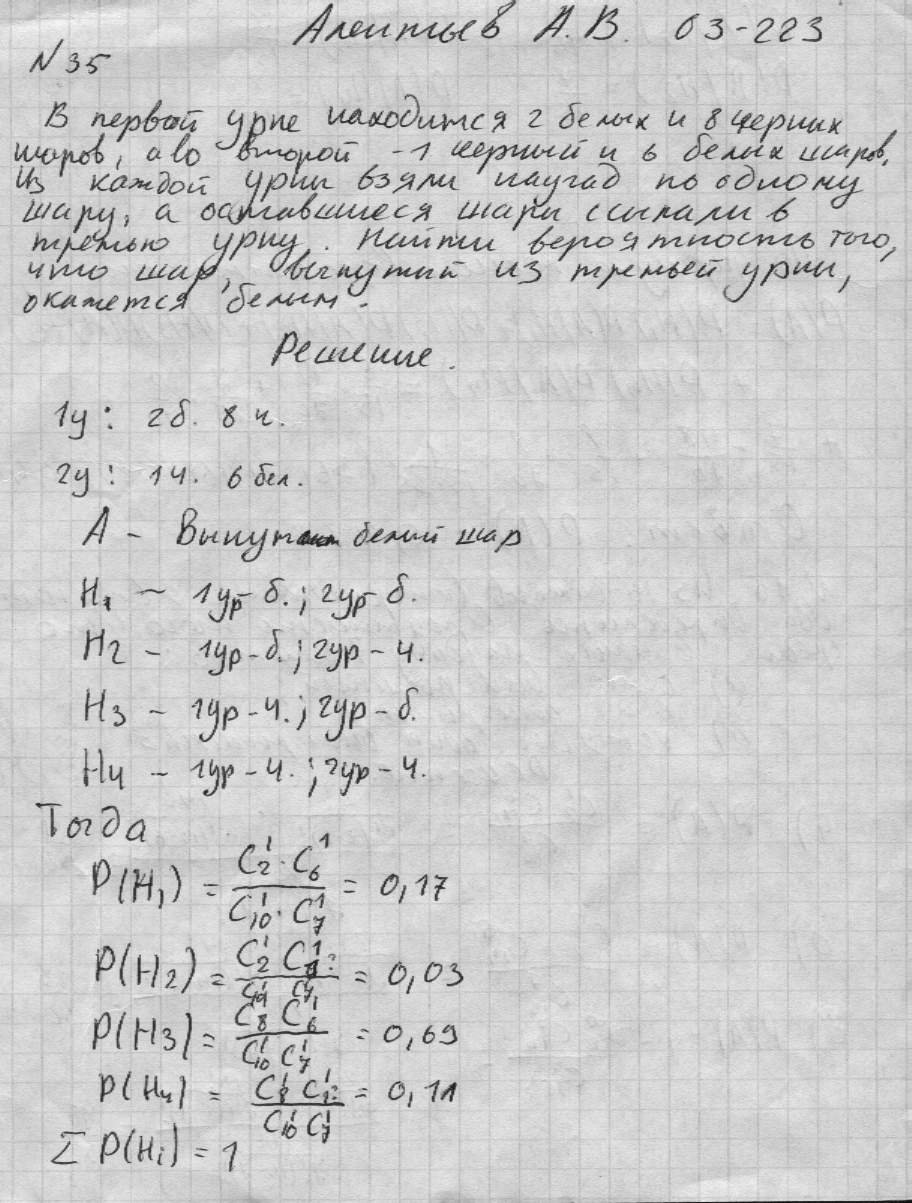 Алентьев А.В. 03-223
№35
В первой урне находится 2 белых и 8 черных
шаров, а во второй - 1 черный и 6 белых шаров.
Из каждой урны взяли наугад по одному
шару, а оставшиеся шары ссыпали в
третью урну. Найти вероятность того,
что шар, вынутый из третьей урны,
окажется белым.
Решение.
1у: 2б. 8ч.
2у: 1ч. 6бел.
A - Вынут белый шар
H₁ - 1ур-б.; 2ур-б.
H₂ - 1ур-б.; 2ур-ч.
H₃ - 1ур-ч.; 2ур-б.
H₄ - 1ур-ч.; 2ур-ч.
Тогда
P(H₁) = (C₂¹ · C₆¹)/(C₁₀¹ · C₇¹) = 0,17
P(H₂) = (C₂¹ C₁¹)/(C₁₀¹ C₇¹) = 0,03
P(H₃) = (C₈¹ C₆¹)/(C₁₀¹ C₇¹) = 0,69
P(H₄) = (C₈¹ C₁¹)/(C₁₀¹ C₇¹) = 0,11
Σ P(Hᵢ) = 1